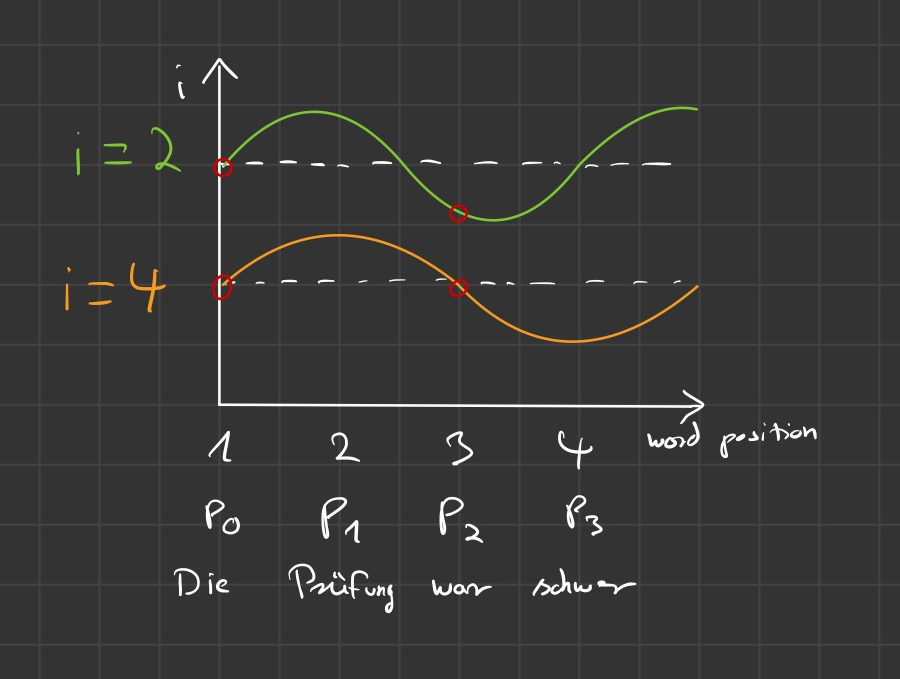 i
i = 2
i = 4
1 2 3 4 word position
P0 P1 P2 P3
Die Prüfung war schwer